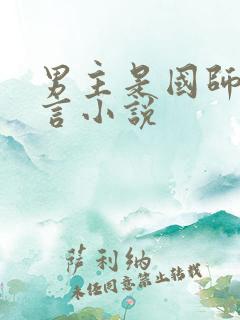 男主是國師
言小說
萨利纳
未经同意禁止转载